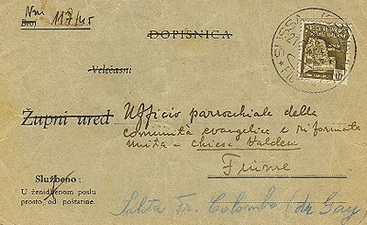 Num.
Broj 117/45
DOPISNICA
SUSSA
Velečasni
Župni ured Ufficio parrocchiale della
comunità evangelica e riformata
unita - chiesa Valdese
Fiume
Službeno:
U ženidbenom poslu
prosto od poštarine.
Salita Fr. Colombo (dr Gay)